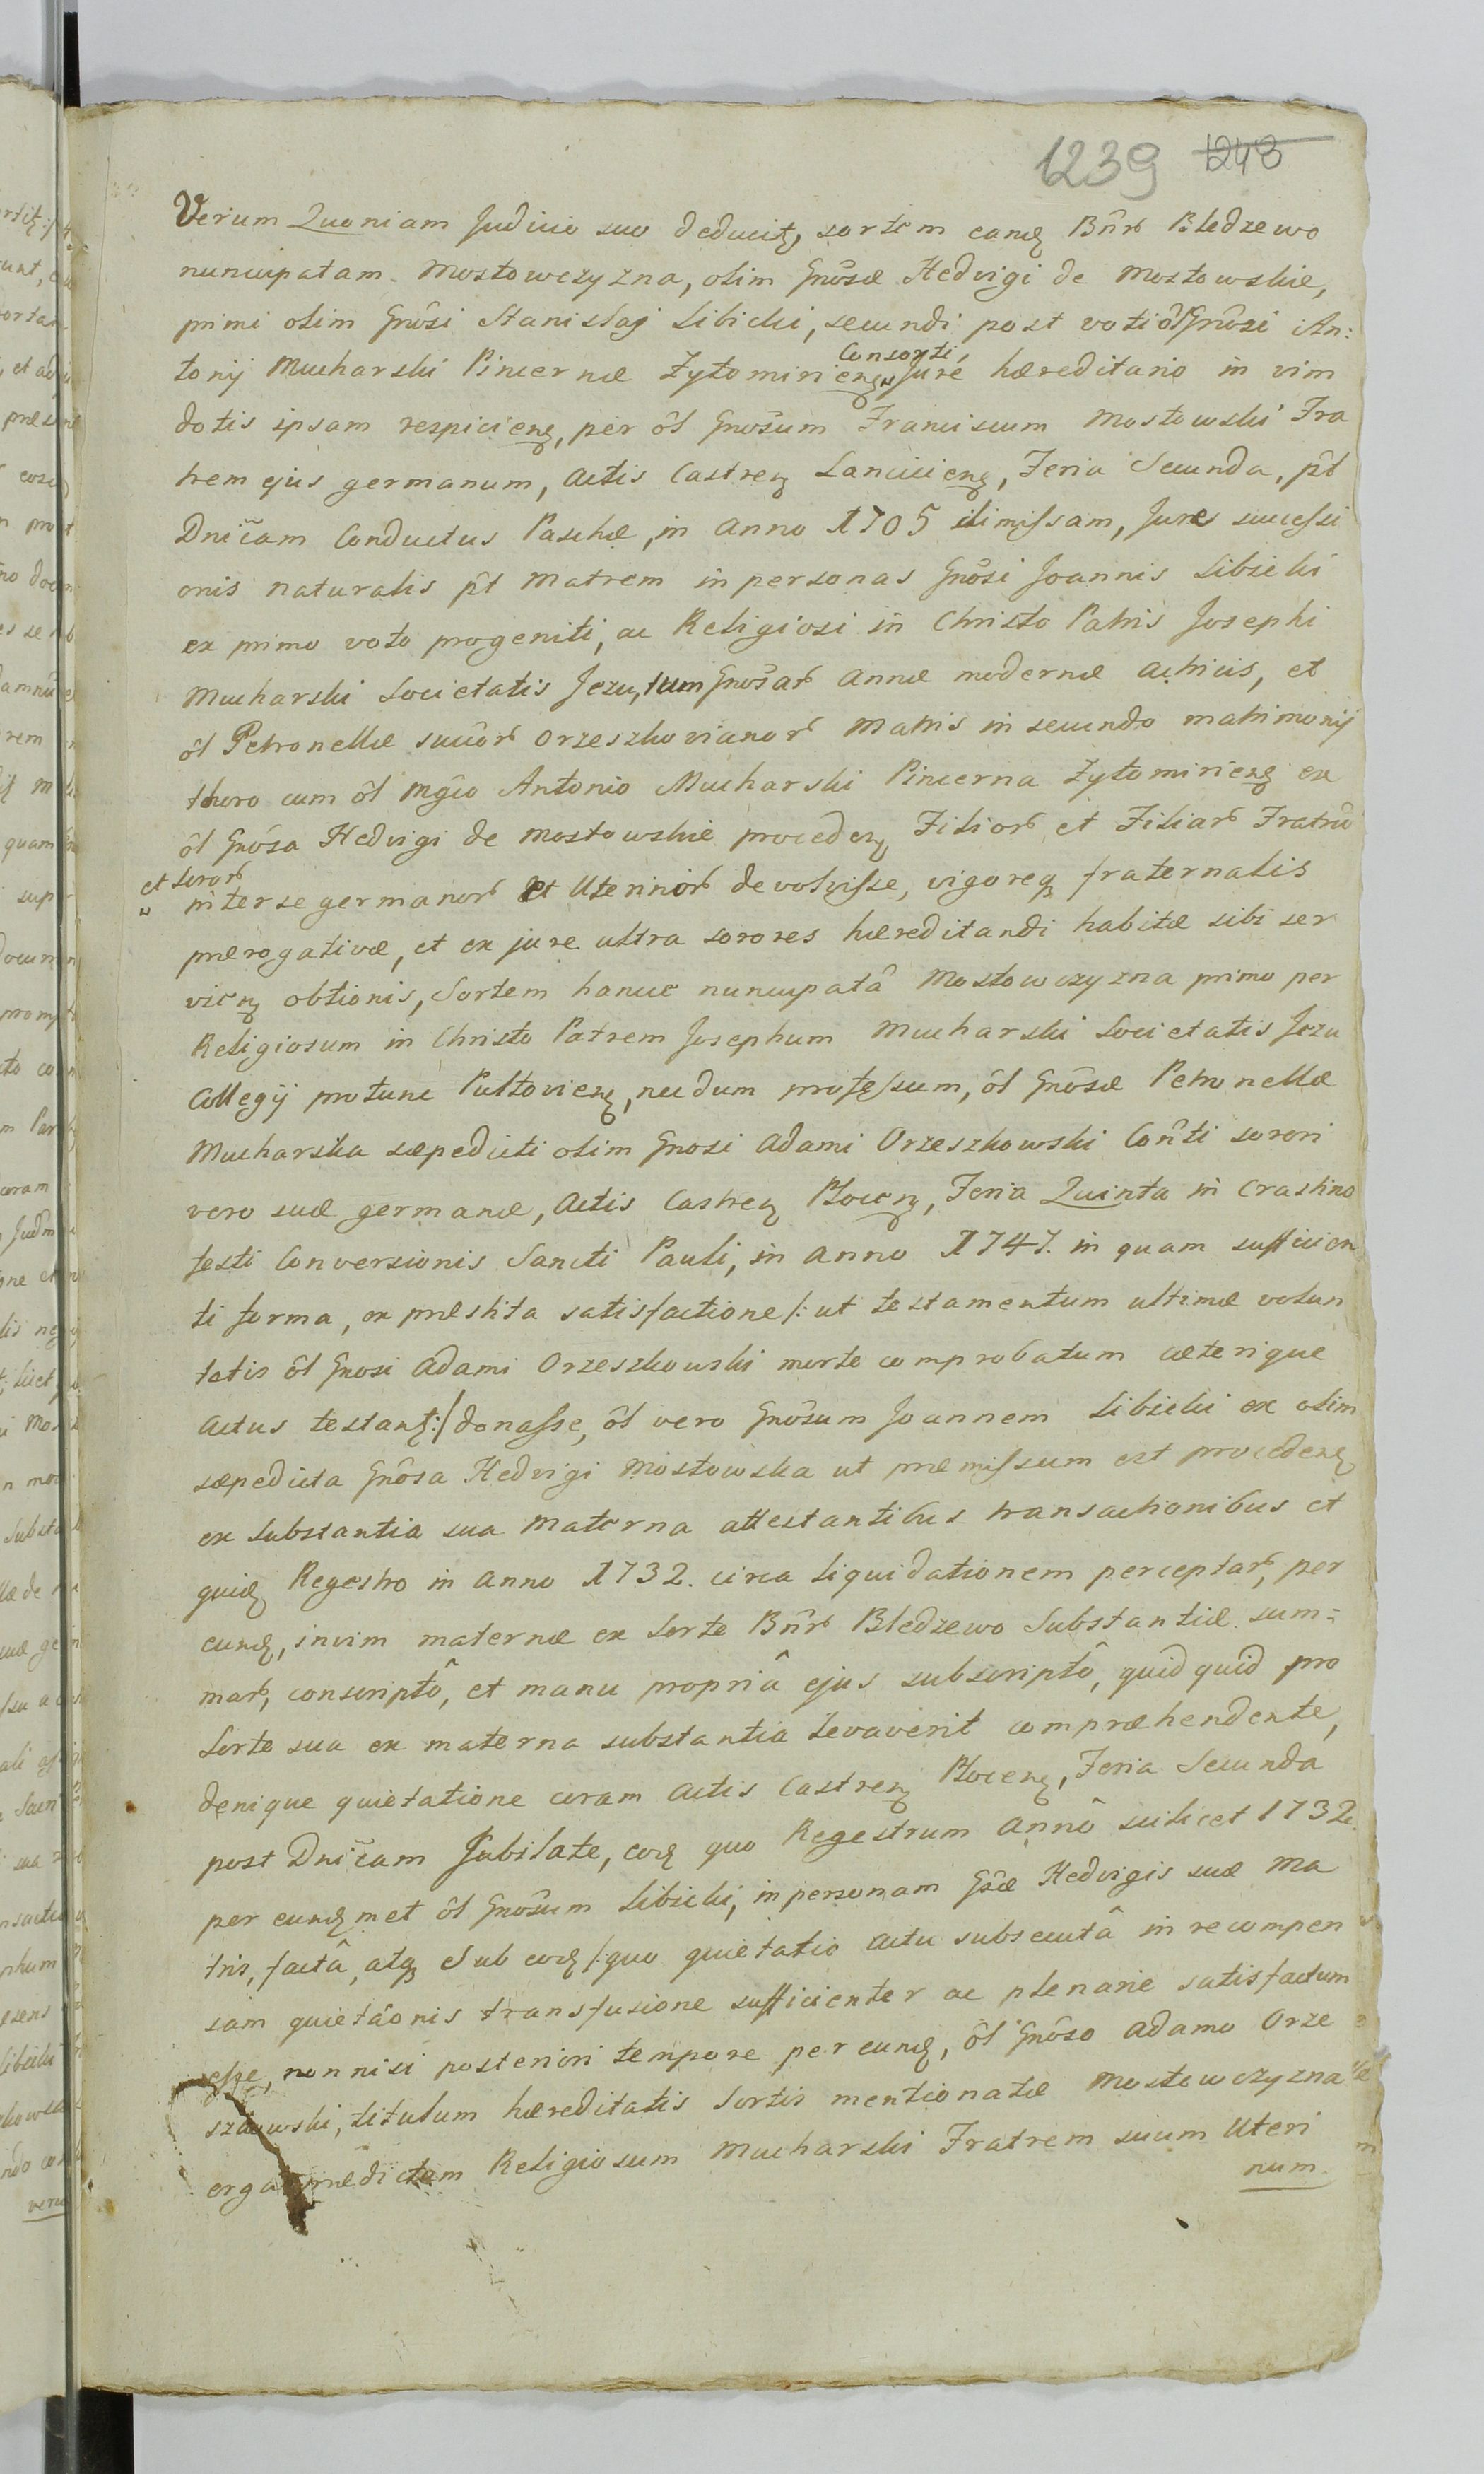 1239 1248
Verum Quoniam Judicio suo deducitʒ, sortem eandʒ Bnr̂ Bledzewo
nuncupatam Mostowczyzna, olim Gnôsæ Hedvigi de Mostowskie,
primi olim Gnôsi Stanislaj Libicki, secundi post voti ôl Gnôsi An:
Consorti,
tonij Mucharski Pincernæ Zytomirienʒ Jure hæreditario in vim
dotis ipsam respicienʒ, per ôl Gnôsum Franciscum Mostowski Fra
trem ejus germanum, Actis Castrenʒ Lancicienʒ, Feria Secunda, p̂t
Dnîcam Conductus Paschæ, in Anno 1705 dimissam, Jure successi
onis naturalis p̂t Matrem in personas Gnôsi Joannis Libicki
ex primo voto progeniti, ac Religiosi in Christo Patris Josephi
Mucharski Societatis Jezu, tum Gnôsar̂ Annæ modernæ Actricis, et
ôl Petronellæ sucôr̂ Orzeszkovianor̂ Matris in secundo matrimonij
thoro cum ôl Mgĉo Antonio Mucharski Pincerna Zytomirienʒ ex
ôl Gnôsa Hedvigi de Mostowskie procedenʒ Filior̂ et Filiar̂ Fratrû
et Soror̂
inter se germanor̂ et Uterinor̂ devolvisse, vigoreqʒ fraternalis
prærogativæ, et ex jure ultra sorores hæreditandi habitæ sibi ser
vienʒ obtionis, Sortem hancce nuncupatâ Mostowczyzna primo per
Religiosum in Christo Patrem Josephum Mucharski Societatis Jezu
Collegij protunc Pultovienʒ, necdum professum, ôl Gnôsæ Petronellæ
Mucharska sæpedicti olim Gnosi Adami Orzeszkowski Con̂ti sorori
vero suæ germanæ, Actis Castrenʒ Plocenʒ, Feria Quinta in Crastino
festi Conversionis Sancti Pauli, in Anno 1747. in quam sufficien
ti forma, ex præstita satisfactione /: ut testamentum ultimæ volun
tatis ôl Gnosi Adami Orzeszkowski morte comprobatum cæterique
Actus testantʒ :/ donasse, ôl vero Gnôsum Joannem Libicki ex olim
sæpedicta Gnôsa Hedvigi Mostowska ut præmissum est procedenʒ
ex Substantia sua Materna attestantibus transactionibus et
quidʒ Regestro in Anno 1732. circa liquidationem perceptar̂, per
eundʒ, in vim maternæ ex Sorte Bnr̂ Bledzewo Substantiæ sum=
mar̂, conscriptô, et manu propriâ ejus subscriptô, quidquid pro
Sorte sua ex materna substantia levaverit compræhendente,
denique quietatione coram Actis Castrenʒ Plocenʒ, Feria Secunda
post Dnîcam Jubilate, eodʒ quo Regestrum Annô scilicet 1732.
per eundʒmet ôl Gnôsum Libicki, in personam Gsæ Hedvigis suæ Ma
tris, factâ, atqʒ Sub eodʒ /: quo quietatio actu subsecutâ in recompen
sam quietâonis transfusione sufficienter ac plenarie satisfactum
esse, nonnisi posteriori tempore per eundʒ, ôl Gnôso Adamo Orze
szkowski, titulum hæreditatis Sortis mentionatæ Mostowczyzna
erga prædictam Religiosum Mucharski Fratrem suum Uteri
num.